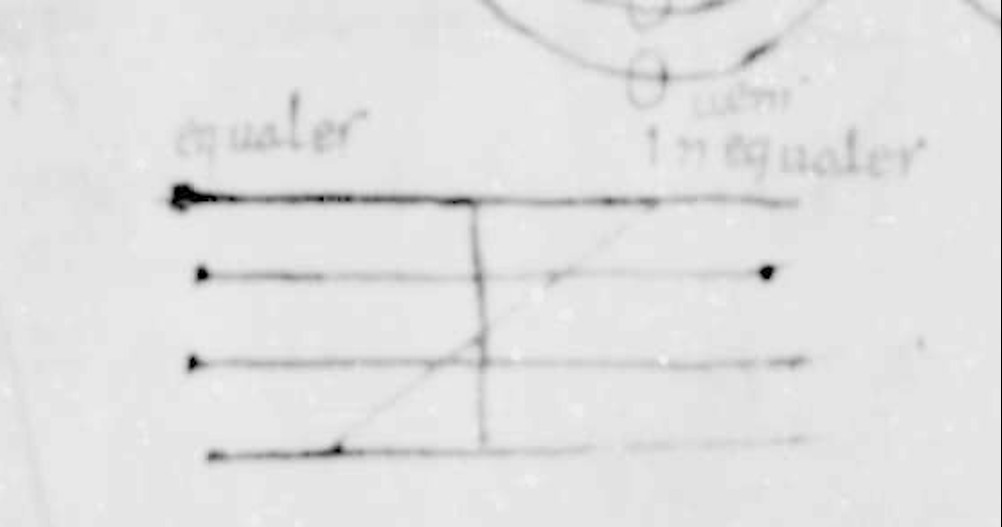 equaler
Inequaler